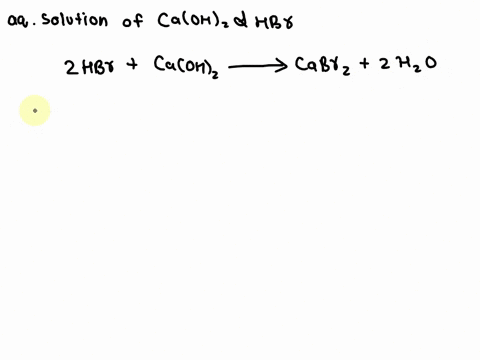 aq. Solution of Ca(OH)₂ & HBr
2 HBr + Ca(OH)₂ ⟶ CaBr₂ + 2 H₂O